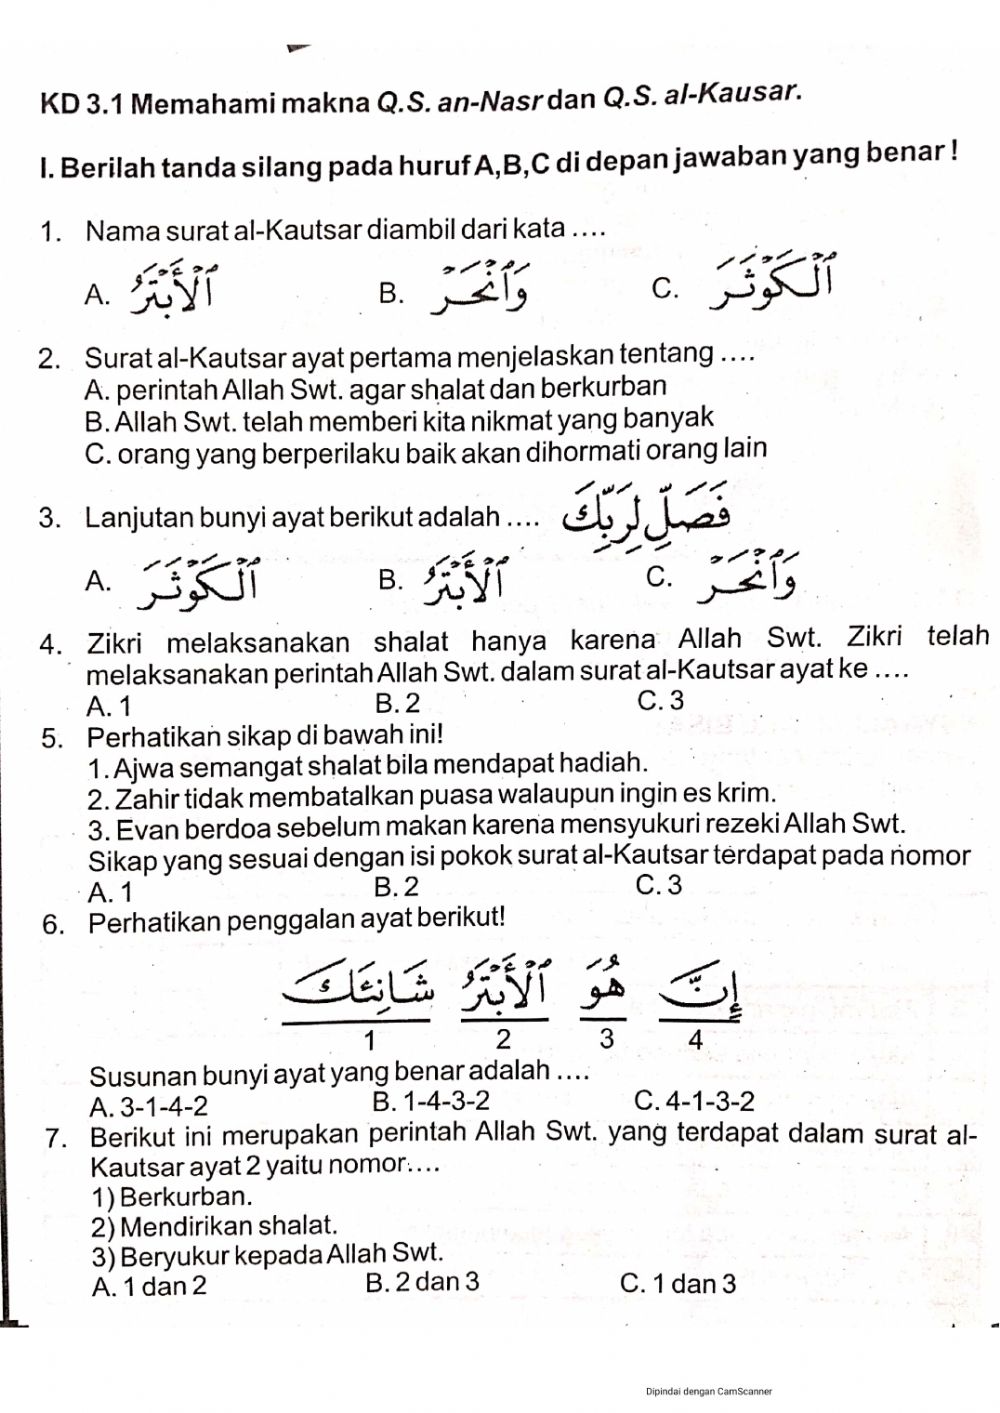 KD 3.1 Memahami makna Q.S. an-Nasr dan Q.S. al-Kausar.
I. Berilah tanda silang pada huruf A,B,C di depan jawaban yang benar !
1. Nama surat al-Kautsar diambil dari kata ....
A. ٱلْأَبْتَرُ B. وَٱنْحَرْ C. ٱلْكَوْثَرَ
2. Surat al-Kautsar ayat pertama menjelaskan tentang ....
A. perintah Allah Swt. agar shalat dan berkurban
B. Allah Swt. telah memberi kita nikmat yang banyak
C. orang yang berperilaku baik akan dihormati orang lain
3. Lanjutan bunyi ayat berikut adalah .... فَصَلِّ لِرَبِّكَ
A. ٱلْكَوْثَرَ B. ٱلْأَبْتَرُ C. وَٱنْحَرْ
4. Zikri melaksanakan shalat hanya karena Allah Swt. Zikri telah
melaksanakan perintah Allah Swt. dalam surat al-Kautsar ayat ke ....
A. 1 B. 2 C. 3
5. Perhatikan sikap di bawah ini!
1. Ajwa semangat shalat bila mendapat hadiah.
2. Zahir tidak membatalkan puasa walaupun ingin es krim.
3. Evan berdoa sebelum makan karena mensyukuri rezeki Allah Swt.
Sikap yang sesuai dengan isi pokok surat al-Kautsar terdapat pada nomor
A. 1 B. 2 C. 3
6. Perhatikan penggalan ayat berikut!
إِنَّ هُوَ ٱلْأَبْتَرُ شَانِئَكَ
1 2 3 4
Susunan bunyi ayat yang benar adalah ....
A. 3-1-4-2 B. 1-4-3-2 C. 4-1-3-2
7. Berikut ini merupakan perintah Allah Swt. yang terdapat dalam surat al-
Kautsar ayat 2 yaitu nomor....
1) Berkurban.
2) Mendirikan shalat.
3) Beryukur kepada Allah Swt.
A. 1 dan 2 B. 2 dan 3 C. 1 dan 3
Dipindai dengan CamScanner